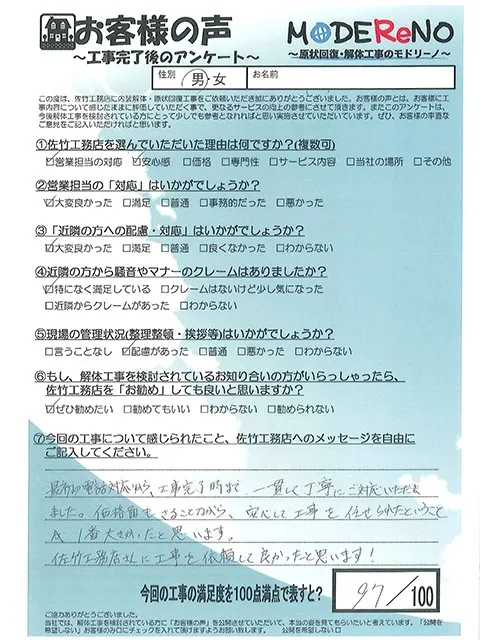 お客様の声
～工事完了後のアンケート～
MODEReNO
～原状回復・解体工事のモドリーノ～
性別 男・女 お名前
この度は、佐竹工務店に内装解体・原状回復工事をご依頼いただき誠にありがとうございました。お客様の声とは、お客様に工
事内容について感じたままに評価していただく事で、更なるサービスの向上の参考にさせて頂きます。またこのアンケートは、
今後解体工事を検討されている方にとって少しでも参考となればと思い実施させていただいています。ぜひ、お客様の率直な
ご意見をご記入いただければと思います。
①佐竹工務店を選んでいただいた理由は何ですか?(複数可)
☑営業担当の対応 ☑安心感 □価格 □専門性 □サービス内容 □当社の場所 □その他
②営業担当の「対応」はいかがでしょうか?
☑大変良かった □満足 □普通 □事務的だった □悪かった
③「近隣の方への配慮・対応」はいかがでしょうか?
☑大変良かった □満足 □普通 □良くなかった □わからない
④近隣の方から騒音やマナーのクレームはありましたか?
☑特になく満足している □クレームはないけど少し気になった
□近隣からクレームがあった □わからない
⑤現場の管理状況(整理整頓・挨拶等)はいかがでしょうか?
□言うことなし ☑配慮があった □普通 □悪かった □わからない
⑥もし、解体工事を検討されているお知り合いの方がいらっしゃったら、
佐竹工務店を「お勧め」しても良いと思いますか?
☑ぜひ勧めたい □勧めてもいい □わからない □勧められない
⑦今回の工事について感じられたこと、佐竹工務店へのメッセージを自由に
ご記入してください。
最初の電話対応から、工事完了時まで、一貫して丁寧にご対応いただき
ました。価格面もさることながら、安心して工事を任せられたということ
が 1番大きかったと思います。
佐竹工務店さんに工事を依頼して良かったと思います!
今回の工事の満足度を100点満点で表すと? 97/100
ご協力ありがとうございました。
当社では、解体工事を検討されている方に「お客様の声」を公開させていただいて、本当の姿を見てもらいたいと考えています。「公開を
希望しない」お客様のみ□にチェックを入れて頂けますようお願い致します。 公開を希望しない□